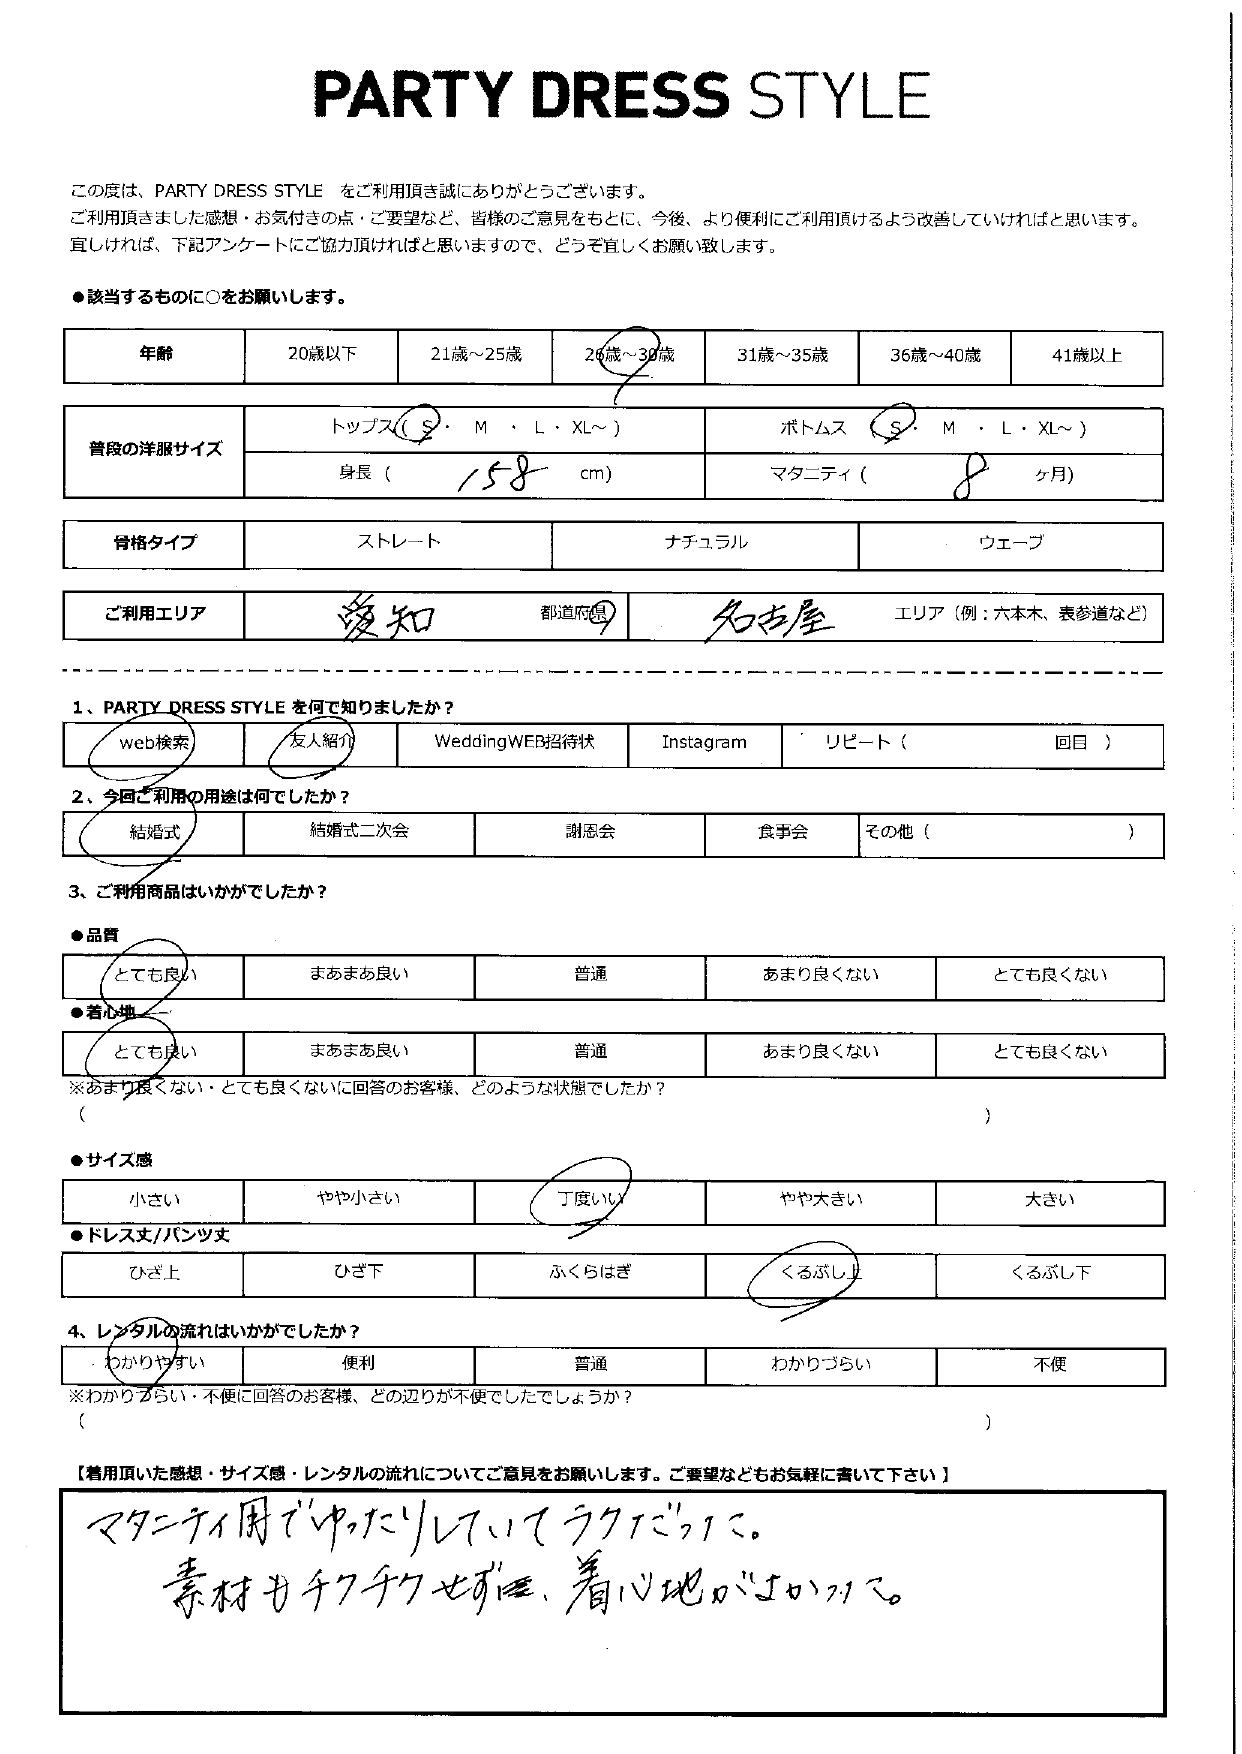 PARTY DRESS STYLE
この度は、PARTY DRESS STYLE をご利用頂き誠にありがとうございます。
ご利用頂きました感想・お気付きの点・ご要望など、皆様のご意見をもとに、今後、より便利にご利用頂けるよう改善していければと思います。
宜しければ、下記アンケートにご協力頂ければと思いますので、どうぞ宜しくお願い致します。
●該当するものに○をお願いします。
年齢 20歳以下 21歳～25歳 26歳～30歳 31歳～35歳 36歳～40歳 41歳以上
普段の洋服サイズ トップス( S・ M ・ L・ XL～ ) ボトムス ( S・ M ・ L・ XL～ )
身長 ( 158 cm) マタニティ ( 8 ヶ月)
骨格タイプ ストレート ナチュラル ウェーブ
ご利用エリア 愛知 都道府県 名古屋 エリア（例：六本木、表参道など）
1、PARTY DRESS STYLE を何で知りましたか？
web検索 友人紹介 WeddingWEB招待状 Instagram リピート（ 回目 ）
2、今回ご利用の用途は何でしたか？
結婚式 結婚式二次会 謝恩会 食事会 その他（ ）
3、ご利用商品はいかがでしたか？
●品質
とても良い まあまあ良い 普通 あまり良くない とても良くない
●着心地
とても良い まあまあ良い 普通 あまり良くない とても良くない
※あまり良くない・とても良くないに回答のお客様、どのような状態でしたか？
（ ）
●サイズ感
小さい やや小さい 丁度いい やや大きい 大きい
●ドレス丈/パンツ丈
ひざ上 ひざ下 ふくらはぎ くるぶし上 くるぶし下
4、レンタルの流れはいかがでしたか？
わかりやすい 便利 普通 わかりづらい 不便
※わかりづらい・不便に回答のお客様、どの辺りが不便でしたでしょうか？
（ ）
【着用頂いた感想・サイズ感・レンタルの流れについてご意見をお願いします。ご要望などもお気軽に書いて下さい 】
マタニティ用でゆったりしていてラクだった。
素材もチクチクせず、着心地がよかった。